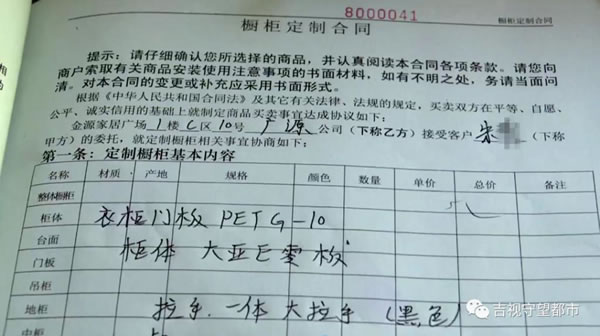 8000041
橱柜定制合同
橱柜定制合同
提示：请仔细确认您所选择的商品，并认真阅读本合同各项条款。请您向
商户索取有关商品安装使用注意事项的书面材料，如有不明之处，务请当面问
清。对本合同的变更或补充应采用书面形式。
根据《中华人民共和国合同法》及其它有关法律、法规的规定，买卖双方在平等、自愿、
公平、诚实信用的基础上就制定商品买卖事宜达成协议如下：
金源家居广场1楼C区10号广源公司（下称乙方）接受客户朱（下称
甲方）的委托，就定制橱柜相关事宜协商如下：
第一条：定制橱柜基本内容
名称 材质 产地 规格 颜色 数量 单价 总价 备注
整体橱柜
柜体 衣柜门板 PETG-10
台面 柜体 大亚E零板
门板
吊柜
地柜 拉手一体大拉手（黑色）
中柜
吉视守望都市